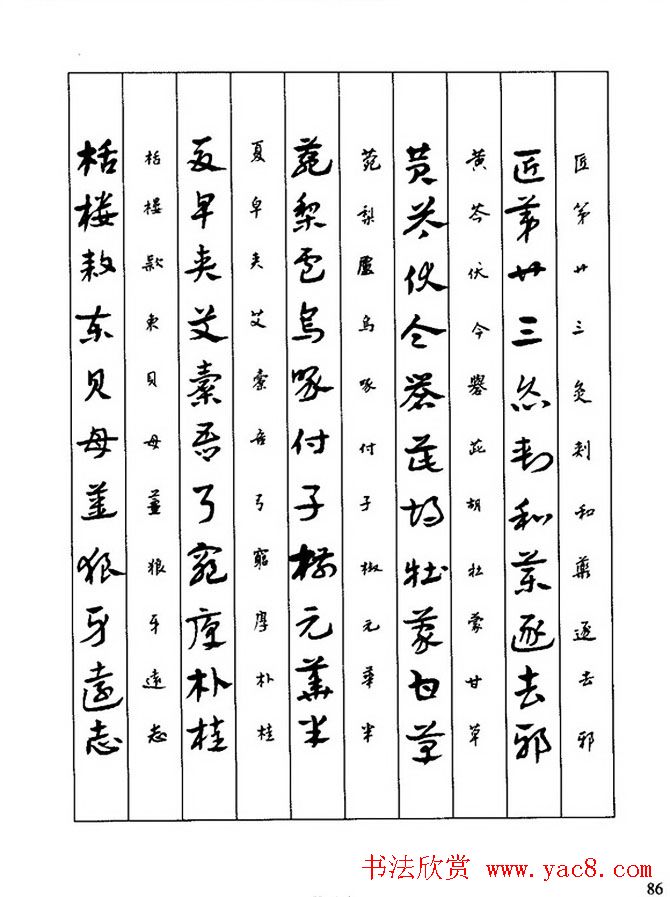 匠第廿三灸刺和藥逐去邪
匠第廿三灸刺和藥逐去邪
黄芩伏令礜茈胡牡蒙甘草
黄芩伏令礜茈胡牡蒙甘草
菀梨盧烏啄付子椒元華半
菀梨盧烏啄付子椒元華半
夏皁夹艾橐吾弓窮厚朴桂
夏皁夹艾橐吾弓窮厚朴桂
栝楼款東貝母薑狼牙遠志
栝楼款東貝母薑狼牙遠志
书法欣赏 www.yac8.com
86